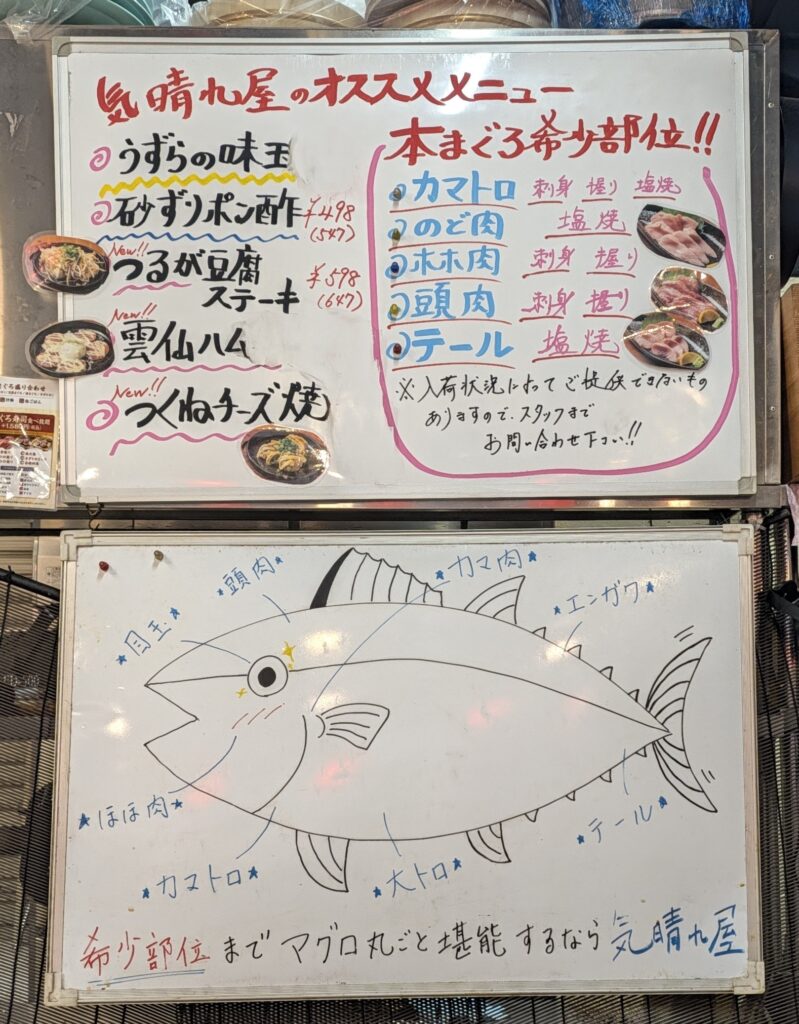 気晴れ屋のオススメメニュー
うずらの味玉
砂ずりポン酢 ¥498
(547)
New!!
つるが豆腐
ステーキ ¥598
(647)
New!!
雲仙ハム
New!!
つくねチーズ焼
本まぐろ希少部位!!
カマトロ 刺身 握り 塩焼
のど肉 塩焼
ホホ肉 刺身 握り
頭肉 刺身 握り
テール 塩焼
※入荷状況によってご提供できないもの
ありますので、スタッフまで
お問い合わせ下さい!!
ぐろ盛り合わせ
ぐろ寿司食べ放題
頭肉
カマ肉
エンガワ
目玉
ほほ肉
カマトロ
大トロ
テール
希少部位まで マグロ丸ごと堪能するなら 気晴れ屋